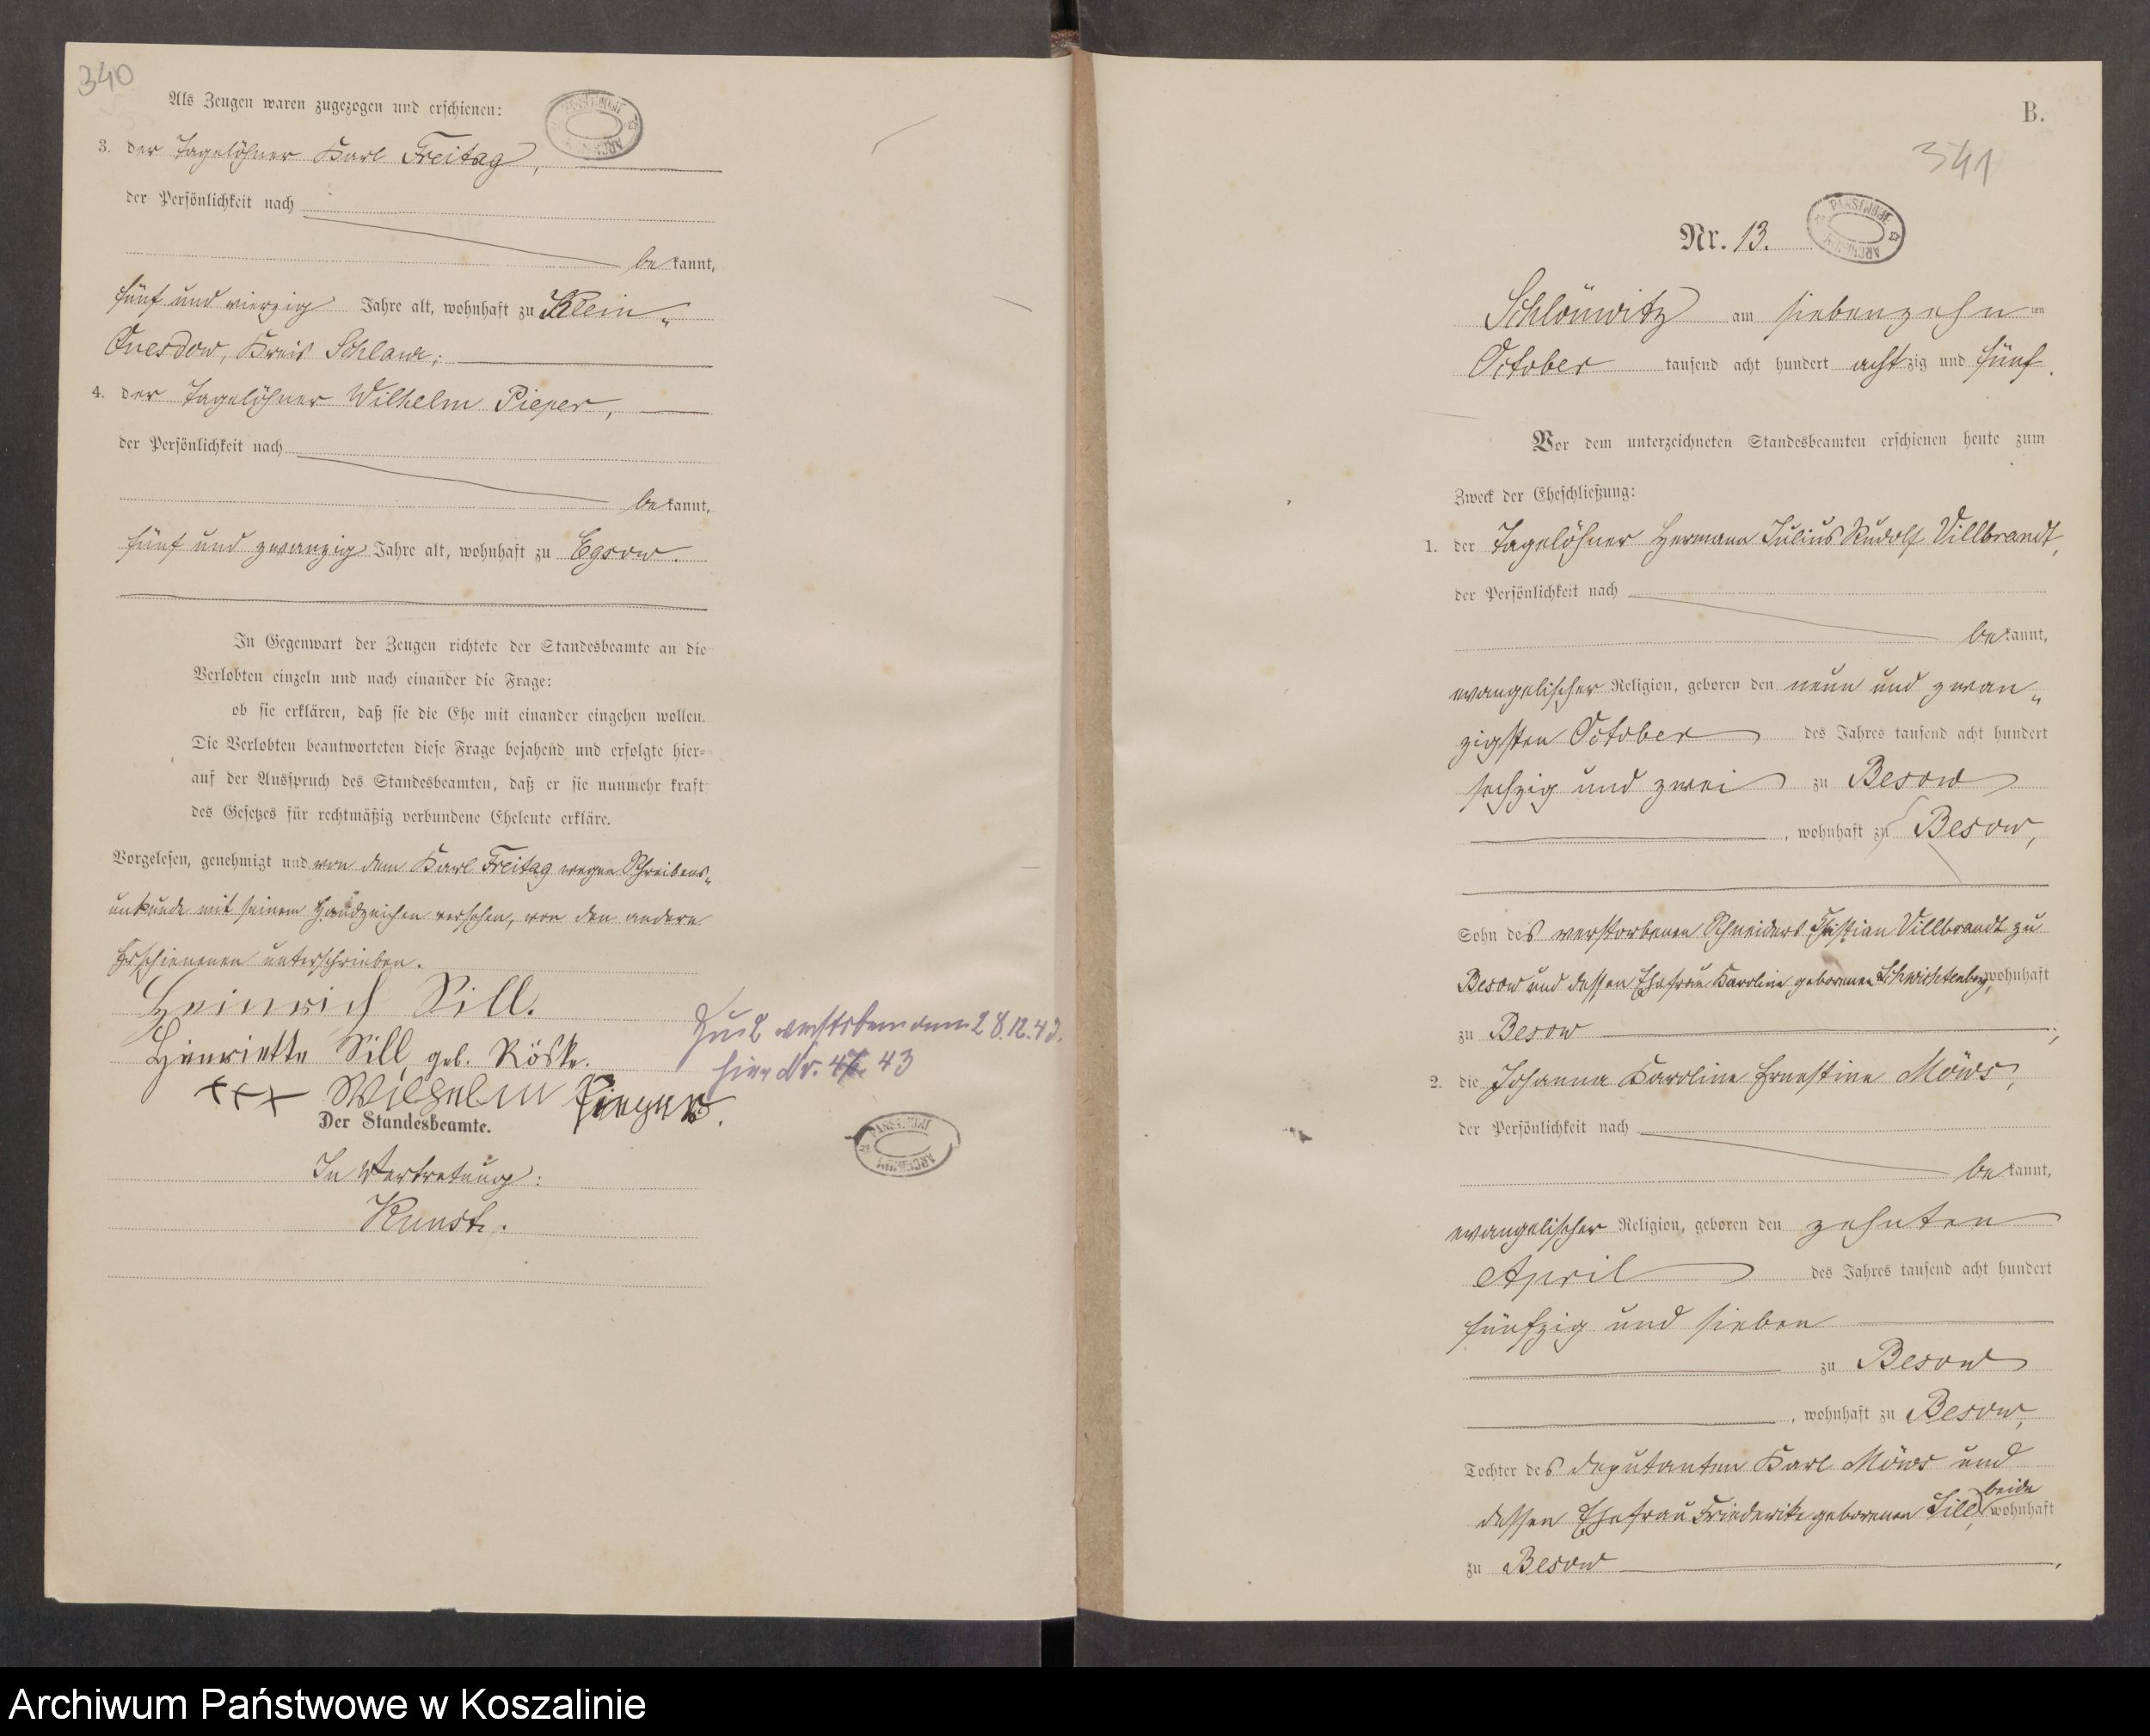 340
Als Zeugen waren zugezogen und erschienen:
3. der Tagelöhner Karl Freitag,
der Persönlichkeit nach
bekannt,
fünf und vierzig Jahre alt, wohnhaft zu Klein-
Quesdow, Kreis Schlawe;
4. der Tagelöhner Wilhelm Pieper,
der Persönlichkeit nach
bekannt,
fünf und zwanzig Jahre alt, wohnhaft zu Egsow.
In Gegenwart der Zeugen richtete der Standesbeamte an die
Verlobten einzeln und nach einander die Frage:
ob sie erklären, daß sie die Ehe mit einander eingehen wollen.
Die Verlobten beantworteten diese Frage bejahend und erfolgte hier=
auf der Ausspruch des Standesbeamten, daß er sie nunmehr kraft
des Gesetzes für rechtmäßig verbundene Eheleute erkläre.
Vorgelesen, genehmigt und von dem Karl Freitag wegen Schreibens-
unkunde mit seinem Handzeichen versehen, von den andern
Erschienenen unterschrieben.
Heinrich Sill.
Henriette Sill, geb. Röske.
+++ Wilhelm Pieper.
Der Standesbeamte.
In Vertretung:
Kunst.
Zu 2 verstorben am 28.12.43.
hier Nr. 43
PAŃSTWOWE ARCHIWUM
B.
341
Nr. 13.
PAŃSTWOWE ARCHIWUM
Schlönwitz am siebenzehnten
October tausend acht hundert achtzig und fünf.
Vor dem unterzeichneten Standesbeamten erschienen heute zum
Zweck der Eheschließung:
1. der Tagelöhner Hermann Julius Rudolf Villbrandt,
der Persönlichkeit nach
bekannt,
evangelischer Religion, geboren den neun und zwan-
zigsten October des Jahres tausend acht hundert
sechzig und zwei zu Besow
, wohnhaft zu Besow,
Sohn des verstorbenen Schneiders Christian Villbrandt zu
Besow und dessen Ehefrau Karoline geborenen Schwichtenberg, wohnhaft
zu Besow ;
2. die Johanna Karoline Ernestine Möws,
der Persönlichkeit nach
bekannt,
evangelischer Religion, geboren den zehnten
April des Jahres tausend acht hundert
fünfzig und sieben
zu Besow
, wohnhaft zu Besow,
Tochter des Deputanten Karl Möws und
dessen Ehefrau Friederike geborenen Sill, beide wohnhaft
zu Besow .
Archiwum Państwowe w Koszalinie